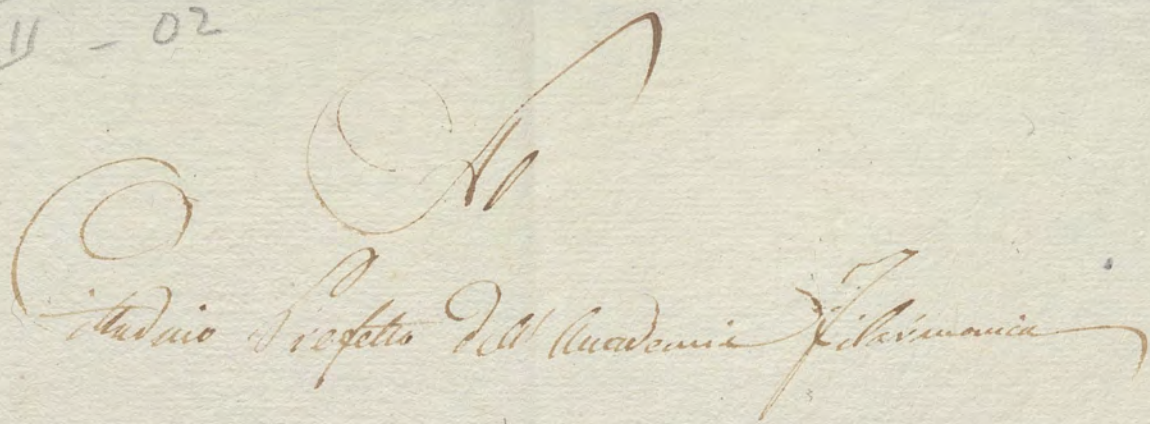 II - 02
Al
Cittadino Prefetto dell' Accademia Filarmonica